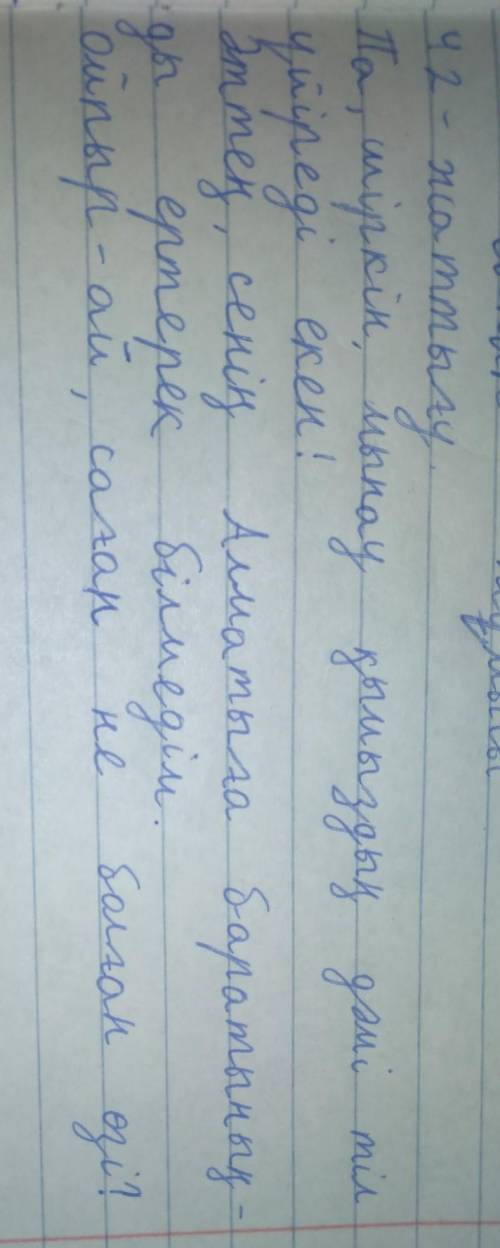 42-жаттығу.
Па, шіркін, мынау қымыздың дәмі тіл
үйіреді екен!
Әттең, сенің Алматыға баратының-
ды ертерек білмедім.
Ойпыр-ай, саған не болған өзі?